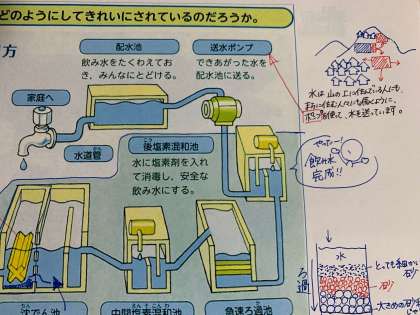 どのようにしてきれいにされているのだろうか。
方
配水池
飲み水をたくわえてお
き、みんなにとどける。
送水ポンプ
できあがった水を
配水池に送る。
家庭へ
水道管
後塩素混和池
水に塩素剤を入れ
て消毒し、安全な
飲み水にする。
沈でん池
中間塩素混和池
急速ろ過池
水は山の上に住んでいる人にも、
ポンプを使って、水を送っています。
やったー!
飲み水
完成!!
ろ過
水
とっても細かい
石り
大きめの石り